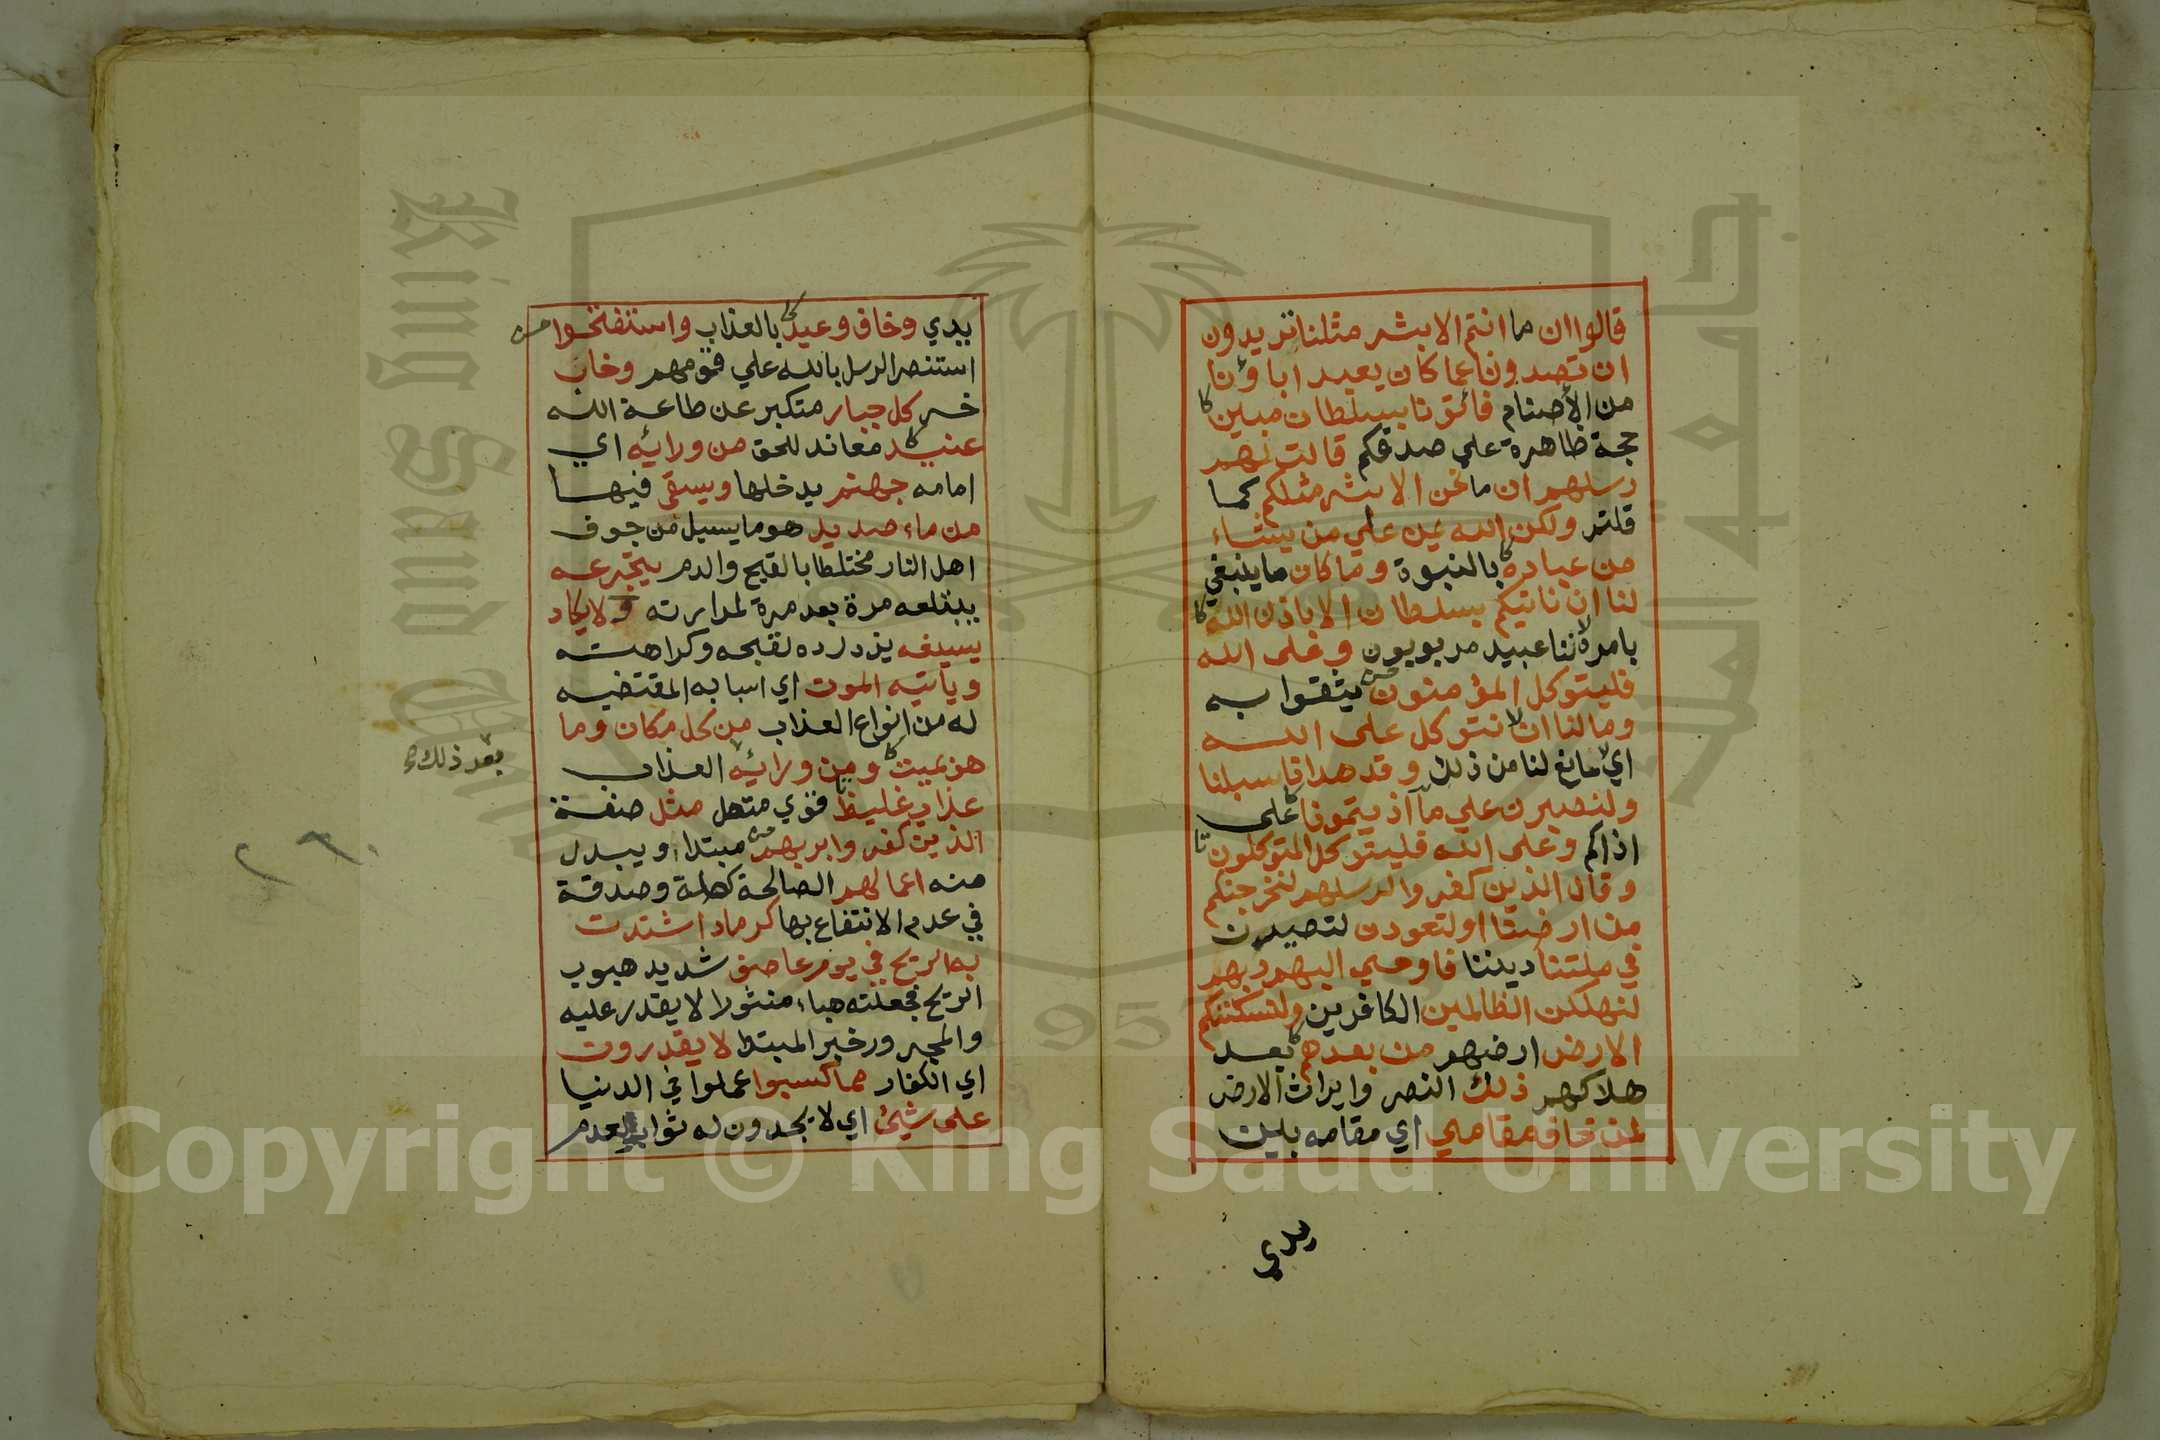 قالوا ان ما انتم الا بشر مثلنا تريدون
ان تصدونا عما كان يعبد اباؤنا
من الأصنام فائتونا بسلطان مبين
حجة ظاهرة علي صدقكم قالت لهم
رسلهم ان ما نحن الا بشر مثلكم كما
قلتم ولكن الله يمن علي من يشاء
من عباده بالنبوة وما كان ما ينبغي
لنا ان ناتيكم بسلطان الا باذن الله
بامره لاننا عبيد مربوبون وعلى الله
فليتوكل المؤمنون يثقوا به
وما لنا ان لا نتوكل على الله
اي لا مانع لنا من ذلك وقد هدانا سبلنا
ولنصبرن علي ما آذيتمونا على
اذاكم وعلى الله فليتوكل المتوكلون
وقال الذين كفروا لرسلهم لنخرجنكم
من ارضنا او لتعودن لتصيرن
في ملتنا ديننا فاوحي اليهم ربهم
لنهلكن الظالمين الكافرين ولنسكننكم
الارض ارضهم من بعدهم بعد
هلاكهم ذلك النصر وايراث الارض
لمن خاف مقامي اي مقامه بين
يدي
يدي وخاف وعيد بالعذاب واستفتحوا
استنصر الرسل بالله علي قومهم وخاب
خسر كل جبار متكبر عن طاعة الله
عنيد معاند للحق من ورائه اي
امامه جهنم يدخلها ويسقى فيها
من ماء صديد هو ما يسيل من جوف
اهل النار مختلطا بالقيح والدم يتجرعه
يبتلعه مرة بعد مرة لمرارته ولا يكاد
يسيغه يزدرده لقبحه وكراهته
وياتيه الموت اي اسبابه المقتضيه
له من انواع العذاب من كل مكان وما
هو بميت ومن ورائه العذاب
بعد ذلك
عذاب غليظ قوي متصل مثل صفة
الذين كفروا بربهم مبتدا ويبدل
منه اعمالهم الصالحة كصلة وصدقة
في عدم الانتفاع بها كرماد اشتدت
به الريح في يوم عاصف شديد هبوب
الريح فجعلته هباء منثورا لا يقدر عليه
والمجرور خبر المبتدا لا يقدرون
اي الكفار مما كسبوا عملوا في الدنيا
على شيئ اي لا يجدون له ثوابا لعدم
King Saud University
جامعة الملك
957
Copyright © King Saud University